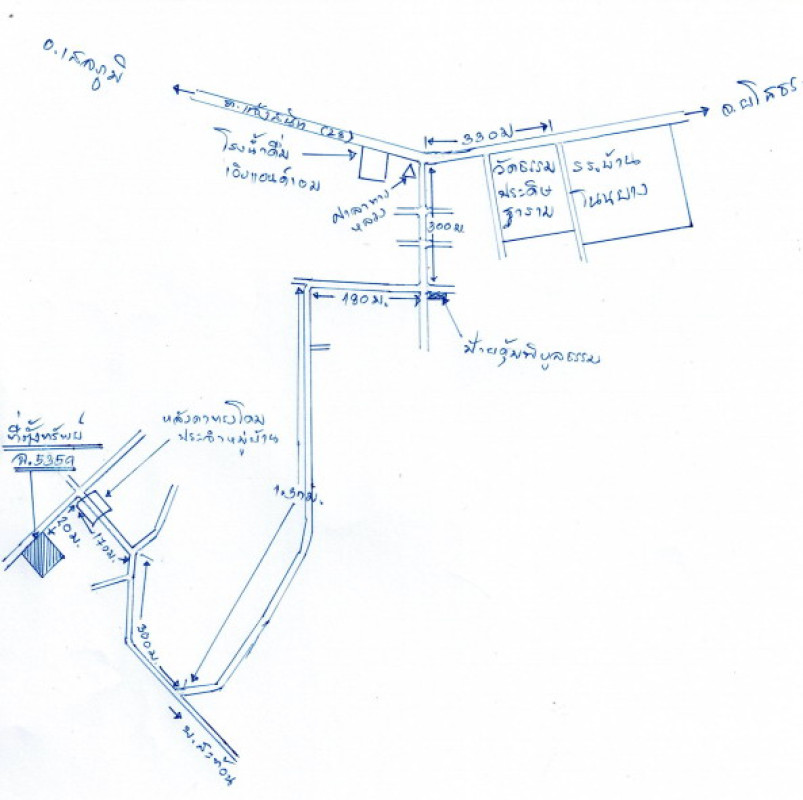 อ.เสลภูมิ
จ.ยโสธร
ถ.แจ้งสนิท (23)
330 ม
โรงน้ำดื่ม
เอิงแอนด์เอม
วัดธรรม
ประดิษ
ฐาราม
รร.บ้าน
โนนยาง
ศาลาทาง
หลวง
300 ม.
180 ม.
ป้ายคุ้มพิบูลธรรม
หลังคาทรงโดม
ประจำหมู่บ้าน
ที่ตั้งทรัพย์
ฉ.5359
1.3กม.
20ม.
170ม.
300 ม.